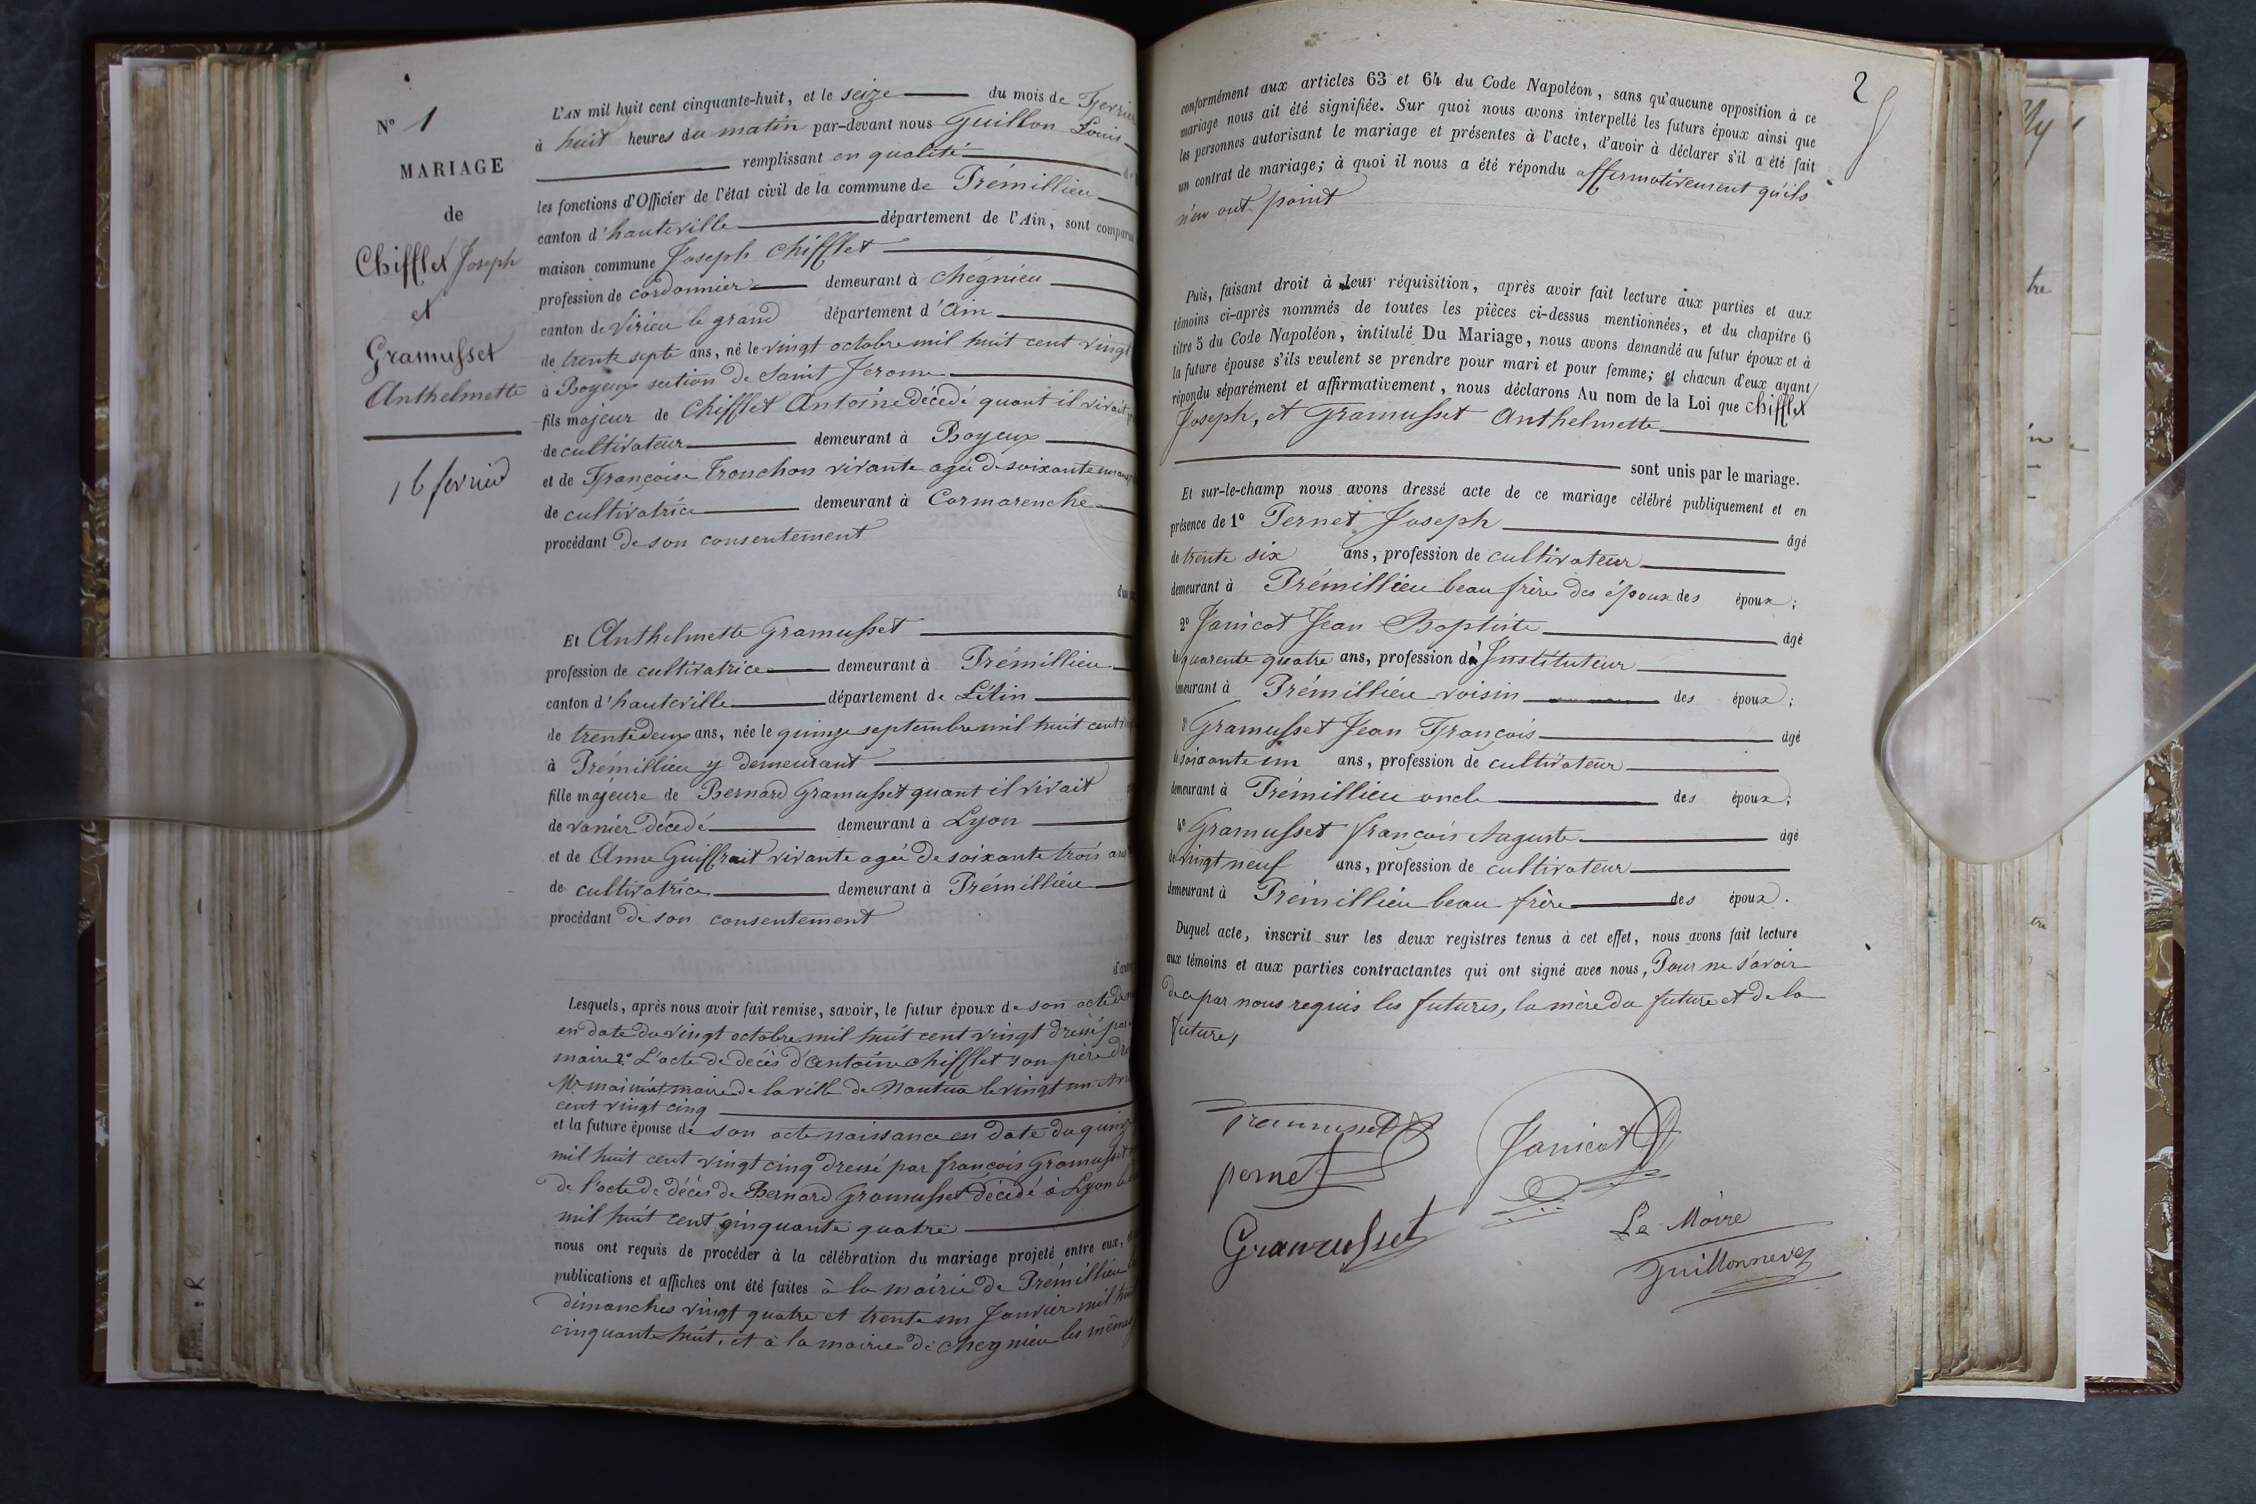 N° 1
MARIAGE
de
Chifflet Joseph
et
Gramusset
Anthelmette
16 fevrier
L'AN mil huit cent cinquante-huit, et le seize du mois de Fevrier
à huit heures du matin par-devant nous Guillon Louis
remplissant en qualité de
les fonctions d'Officier de l'état civil de la commune de Prémillieu
canton d'hauteville département de l'Ain, sont comparus
maison commune Joseph Chifflet
profession de cordonnier demeurant à Chégnieu
canton de Virieu le grand département d'Ain
de trente septe ans, né le vingt octobre mil huit cent vingt
à Boyeux section de Saint Jerome
fils majeur de Chifflet Antoine décédé quant il vivait
de cultivateur demeurant à Boyeux
et de Françoise Tronchon vivante agée de soixante
de cultivatrice demeurant à Cormarenche
procédant de son consentement
d'une part
Et Anthelmette Gramusset
profession de cultivatrice demeurant à Prémillieu
canton d'hauteville département de L'Ain
de trente deux ans, née le quinze septembre mil huit cent
à Prémillieu y demeurant
fille majeure de Bernard Gramusset quant il vivait
de vanier décedé demeurant à Lyon
et de Anne Guiffrait vivante agée de soixante trois ans
de cultivatrice demeurant à Prémillieu
procédant de son consentement
d'autre
Lesquels, après nous avoir fait remise, savoir, le futur époux de son acte de
en date du vingt octobre mil huit cent vingt dressé par
maire 2° L'acte de décès d'Antoine chifflet son père
Mr maire de la ville de Nantua le vingt un
cent vingt cinq
et la future épouse de son acte naissance en date du quinze
mil huit cent vingt cinq dressé par françois Gramusset
de l'acte de décès de Bernard Gramusset décédé à Lyon le
mil huit cent cinquante quatre
nous ont requis de procéder à la célébration du mariage projeté entre eux,
publications et affiches ont été faites à la mairie de Prémillieu
dimanches vingt quatre et trente un Janvier mil huit
cinquante huit, et à la mairie de Chegnieu les mêmes
2
conformément aux articles 63 et 64 du Code Napoléon, sans qu'aucune opposition à ce
mariage nous ait été signifiée. Sur quoi nous avons interpellé les futurs époux ainsi que
les personnes autorisant le mariage et présentes à l'acte, d'avoir à déclarer s'il a été fait
un contrat de mariage; à quoi il nous a été répondu affirmativement qu'ils
n'en ont point
Puis, faisant droit à leur réquisition, après avoir fait lecture aux parties et aux
témoins ci-après nommés de toutes les pièces ci-dessus mentionnées, et du chapitre 6
titre 5 du Code Napoléon, intitulé Du Mariage, nous avons demandé au futur époux et à
la future épouse s'ils veulent se prendre pour mari et pour femme; et chacun d'eux ayant
répondu séparément et affirmativement, nous déclarons Au nom de la Loi que chifflet
Joseph, et Gramusset Anthelmette
sont unis par le mariage.
Et sur-le-champ nous avons dressé acte de ce mariage célébré publiquement et en
présence de 1° Pernet Joseph âgé
de trente six ans, profession de cultivateur
demeurant à Prémillieu beau frère des époux des époux;
2° Janicot Jean Baptiste âgé
de quarente quatre ans, profession d'Instituteur
demeurant à Prémillieu voisin des époux;
3° Gramusset Jean François âgé
de soixante un ans, profession de cultivateur
demeurant à Prémillieu oncle des époux;
4° Gramusset françois Auguste âgé
de vingt neuf ans, profession de cultivateur
demeurant à Prémillieu beau frère des époux.
Duquel acte, inscrit sur les deux registres tenus à cet effet, nous avons fait lecture
aux témoins et aux parties contractantes qui ont signé avec nous, Pour ne savoir
de ce par nous requis les futures, la mère du future et de la
future,
Gramusset
Janicot
pernet
Gramusset
Le Maire